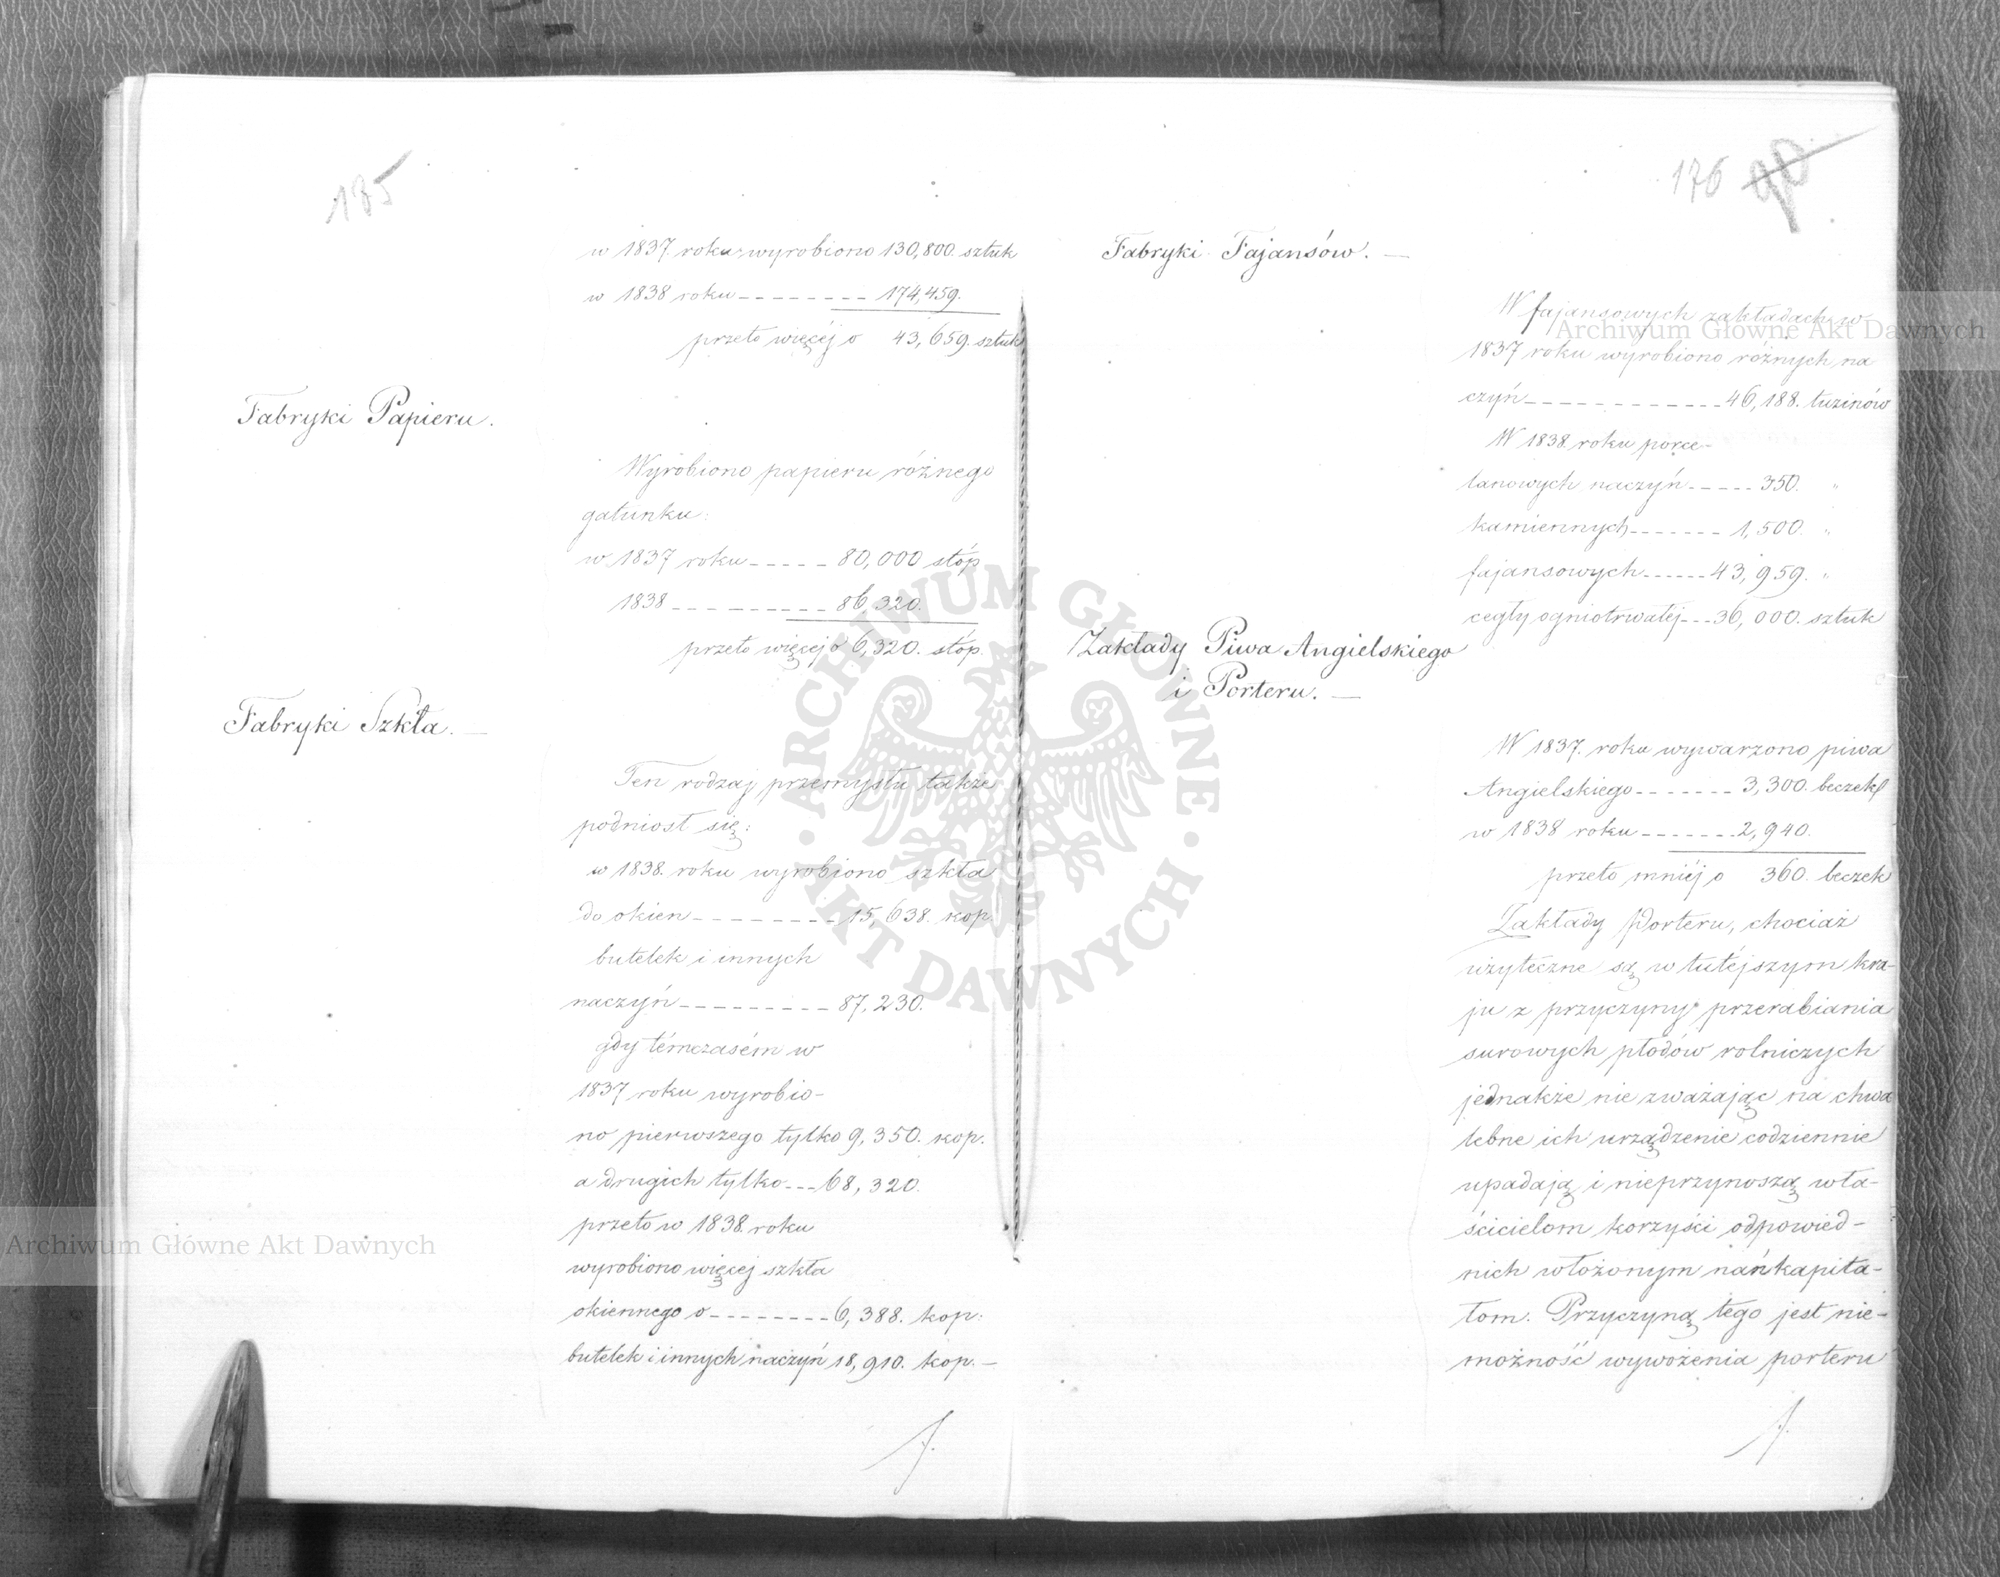 185
w 1837. roku wyrobiono 130,800. sztuk
w 1838 roku - - - - - - - - 174,459.
przeto więcéj o 43,659. sztuk
Fabryki Papieru.
Wyrobiono papieru różnego
gatunku:
w 1837 roku - - - - - 80,000 stóp
1838 - - - - - - - - - - 86,320.
przeto więcéj o 6,320. stóp.
Fabryki Szkła. —
Ten rodzaj przemysłu także
podniosł się:
w 1838. roku wyrobiono szkła
do okien - - - - - - - - - 15,638. kop.
butelek i innych
naczyń - - - - - - - - - - 87,230.
gdy témczasém w
1837 roku wyrobio-
no pierwszego tylko 9,350. kop.
a drugich tylko - - - 68,320.
przeto w 1838 roku
wyrobiono więcej szkła
okiennego o - - - - - - - - 6,388. kop:
butelek i innych naczyń 18,910. kop. —
176 90
Fabryki Fajansów. —
W fajansowych zakładach w
1837 roku wyrobiono różnych na
czyń - - - - - - - - - - - - - 46,188. tuzinów
W 1838 roku porce-
lanowych naczyń - - - - - 350. "
kamiennych - - - - - - - 1,500. "
fajansowych - - - - - - 43,959. "
cegły ogniotrwałej - - - 36,000. sztuk
Zakłady Piwa Angielskiego
i Porteru. —
W 1837. roku wywarzono piwa
Angielskiego - - - - - - - 3,300. beczek
w 1838 roku - - - - - - - 2,940.
przeto mniéj o 360. beczek
Zakłady Porteru, chociaż
użyteczne są w tutéjszym kra-
ju z przyczyny przerabiania
surowych płodów rolniczych
jednakże nie zważając na chwa
lebne ich urządzenie codziennie
upadają i nieprzynoszą wła-
ścicielom korzyści odpowied-
nich włożonym nań kapita-
łom. Przyczyną tego jest nie-
możność wywożenia porteru
Archiwum Główne Akt Dawnych
Archiwum Główne Akt Dawnych
ARCHIWUM GŁÓWNE
· AKT DAWNYCH ·